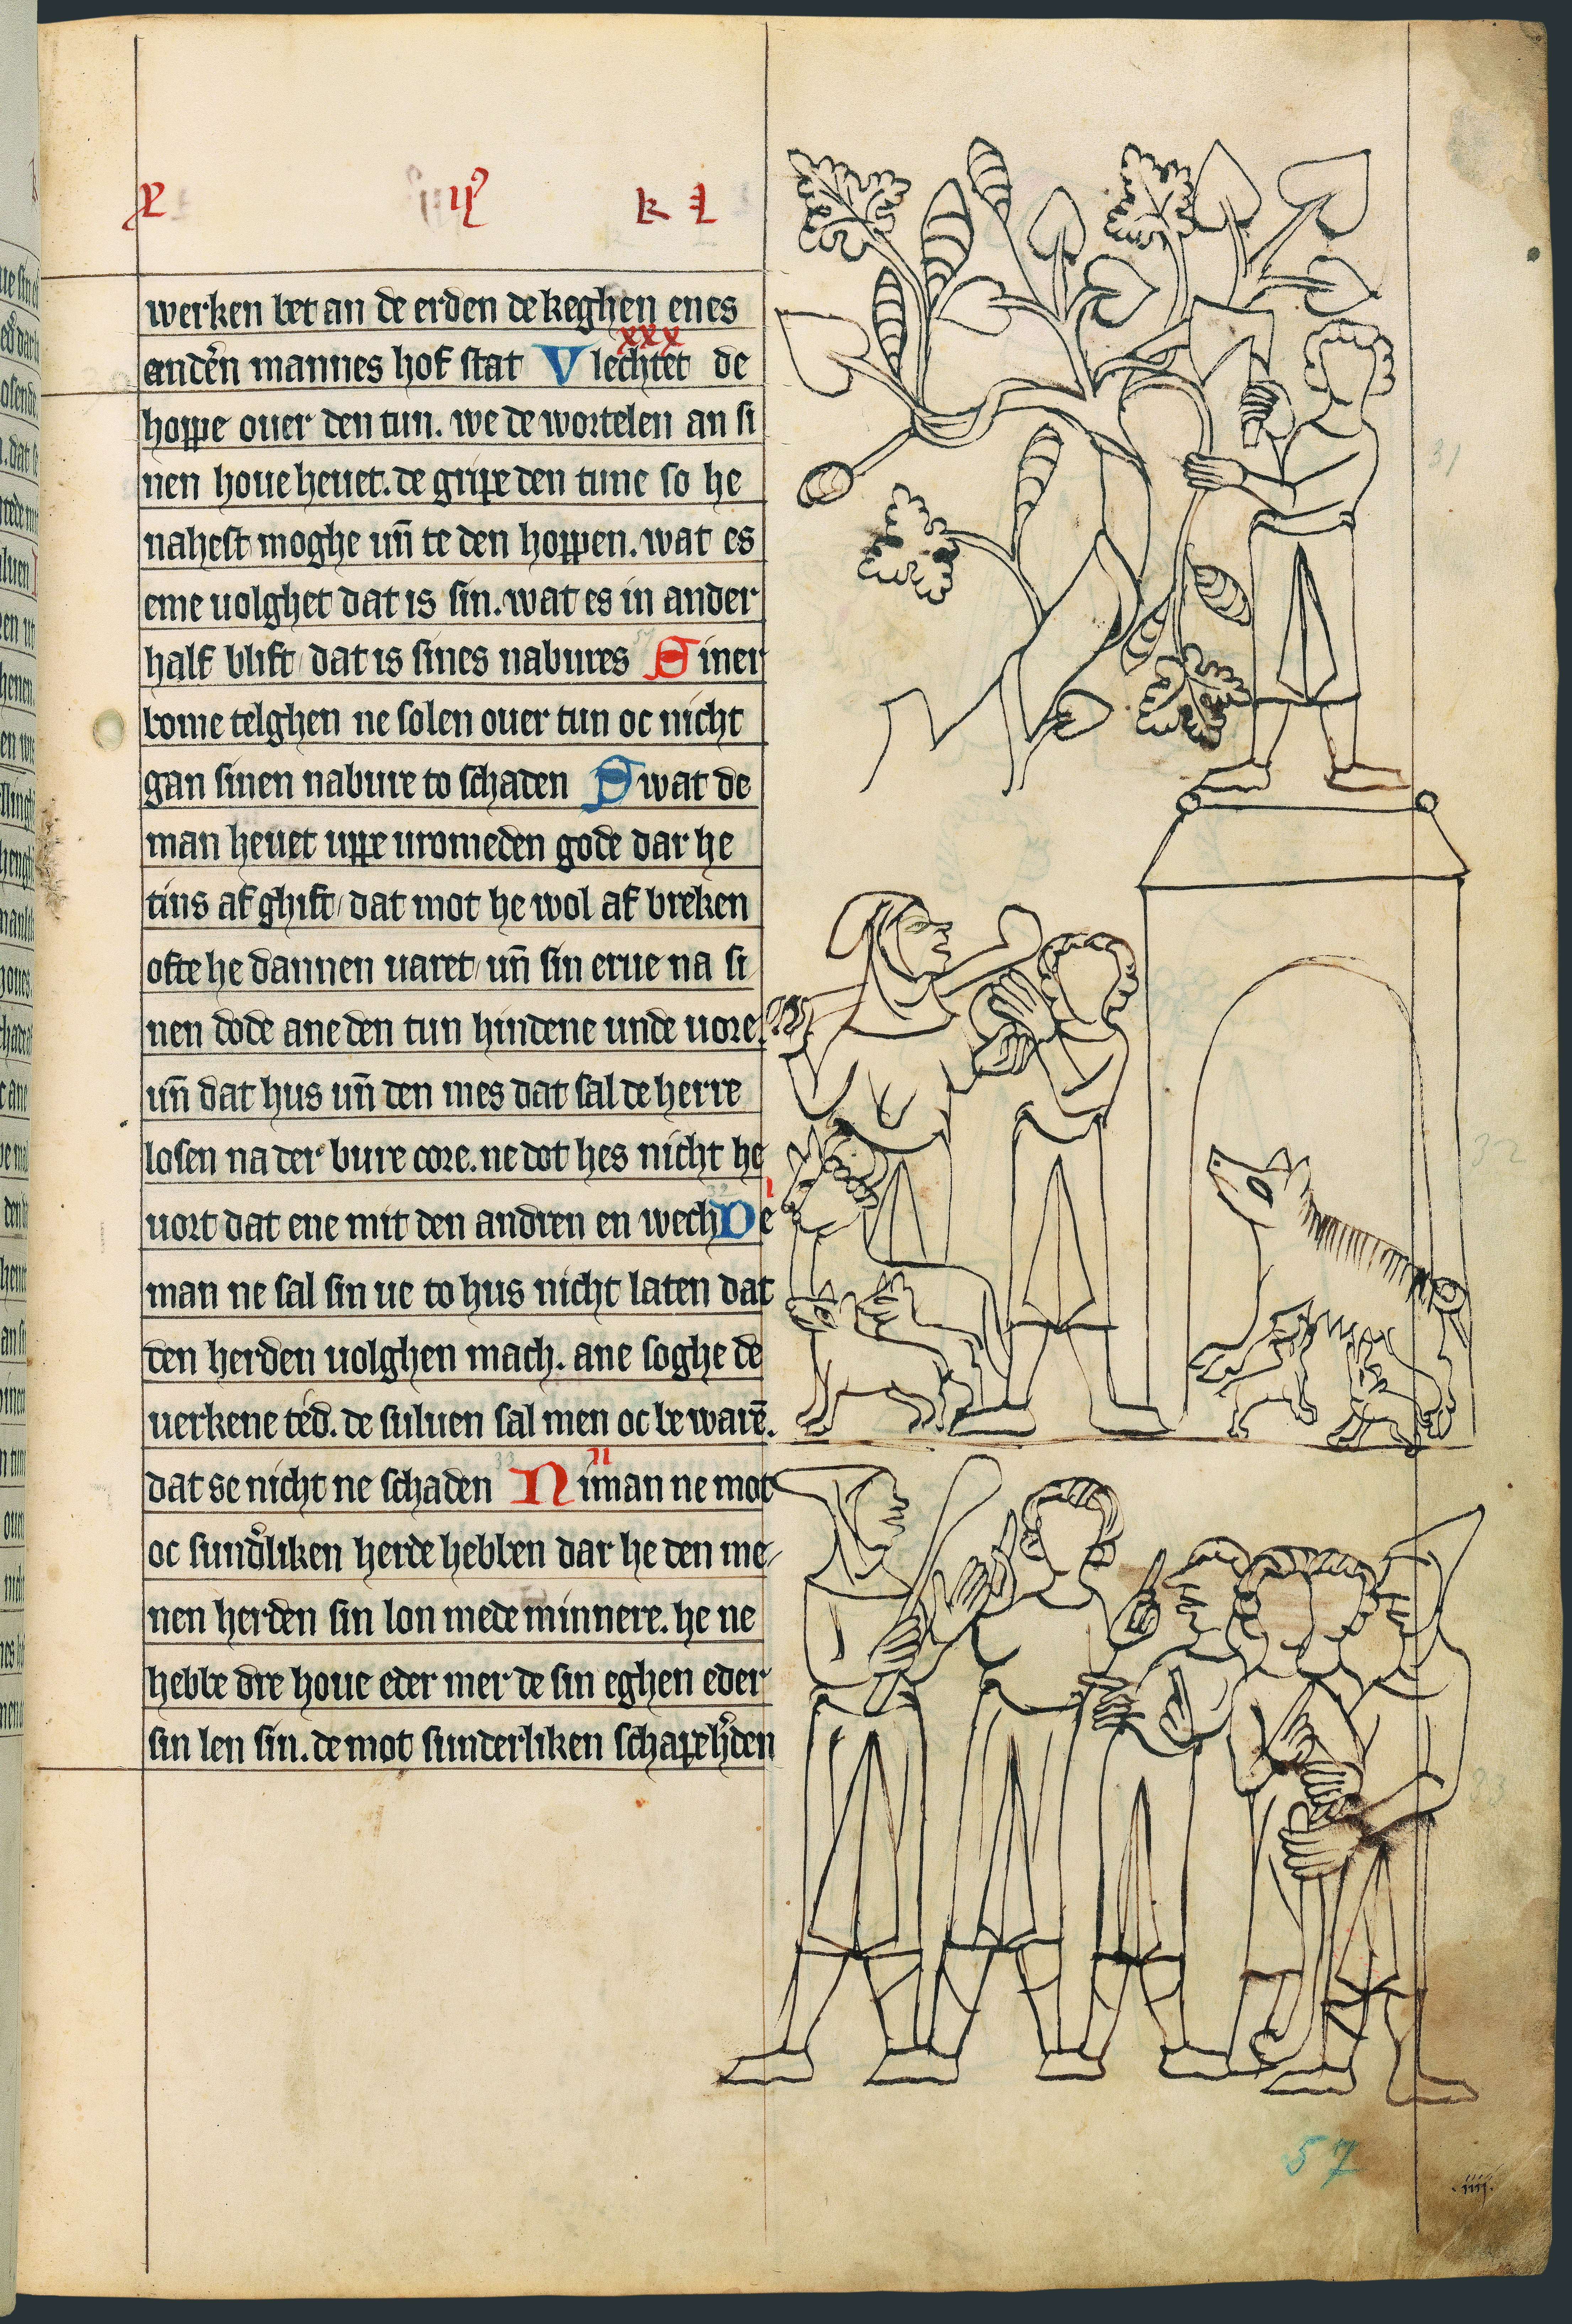 werken bet an de erden de keghen enes
xxx
anden mannes hof stat Vlechtet de
hoppe ouer den tun. we de wortelen an si
nen houe heuet. de gripe den tune so he
nahest moghe uñ te den hoppen. wat es
eme uolghet dat is sin. wat es in ander
half blift/ dat is sines nabures Siner
bome telghen ne solen ouer tun oc nicht
gan sinen nabure to schaden Swat de
man heuet uppe uromeden gode dar he
tins af ghift/ dat mot he wol af breken
ofte he dannen uaret/ uñ sin erue na si
nen dode ane den tun hindene unde uore.
uñ dat hus uñ den mes dat sal de herre
losen na der bure core. ne dot hes nicht he
uort dat ene mit den andren en wech De
man ne sal sin ue to hus nicht laten dat
den herden uolghen mach. ane soghe de
uerkene ted. de suluen sal men oc be warē.
dat se nicht ne schaden Niman ne mot
oc sund'liken herde hebben dar he den me/
nen herden sin lon mede minnere. he ne
hebbe dre houe eder mer de sin eghen eder
sin len sin. de mot sunderliken schapeh'den
31
32
33
57
.iiij.